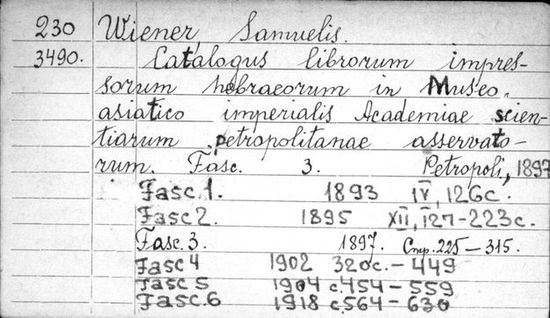 230 Wiener, Samuelis.
3490. Catalogus librorum impres-
sorum hebraeorum in Museo
asiatico imperialis Academiae scien-
tiarum petropolitanae asservato-
rum. Fasc. 3. Petropoli, 1897
Fasc 1. 1893 IV, 126c.
Fasc 2. 1895 XII, 127-223c.
Fasc. 3. 1897. Стр. 225-315.
Fasc 4 1902 320c. - 449
Fasc 5 1904 c 454 - 559
Fasc. 6 1918 c. 564 - 630